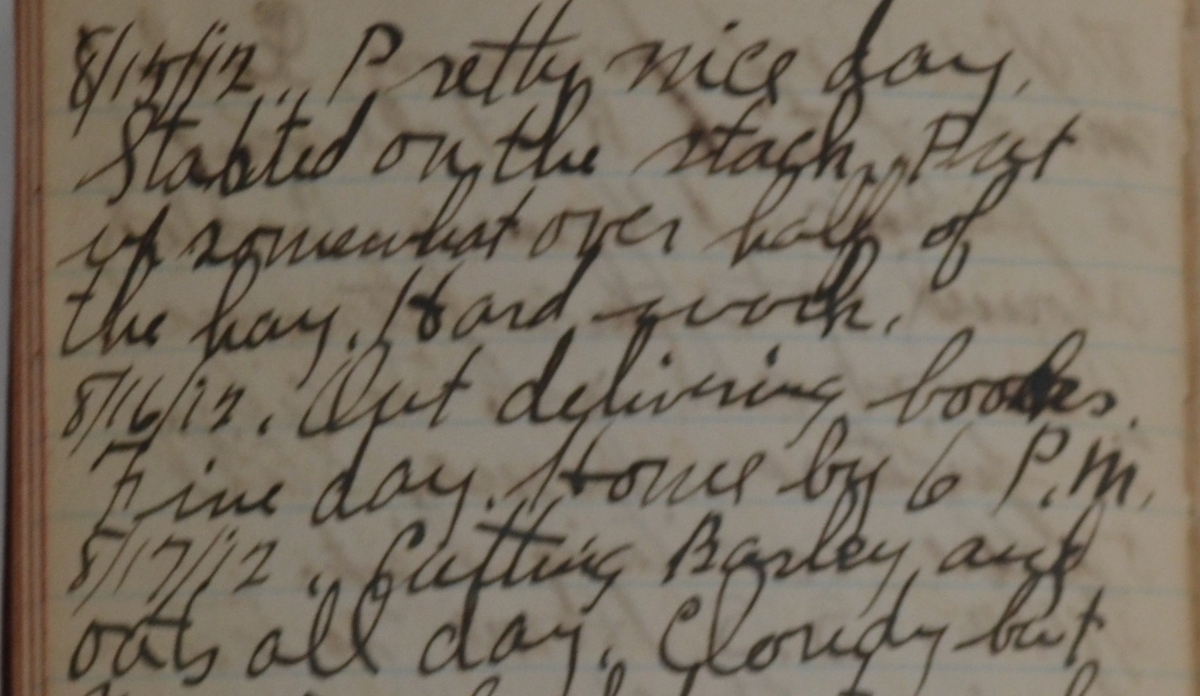 8/15/12. Pretty nice day.
Started on the stack. Put
up somewhat over half of
the hay. Hard work.
8/16/12. Out delivering books.
Fine day. Home by 6 P.M.
8/17/12. Cutting Barley and
oats all day. Cloudy but